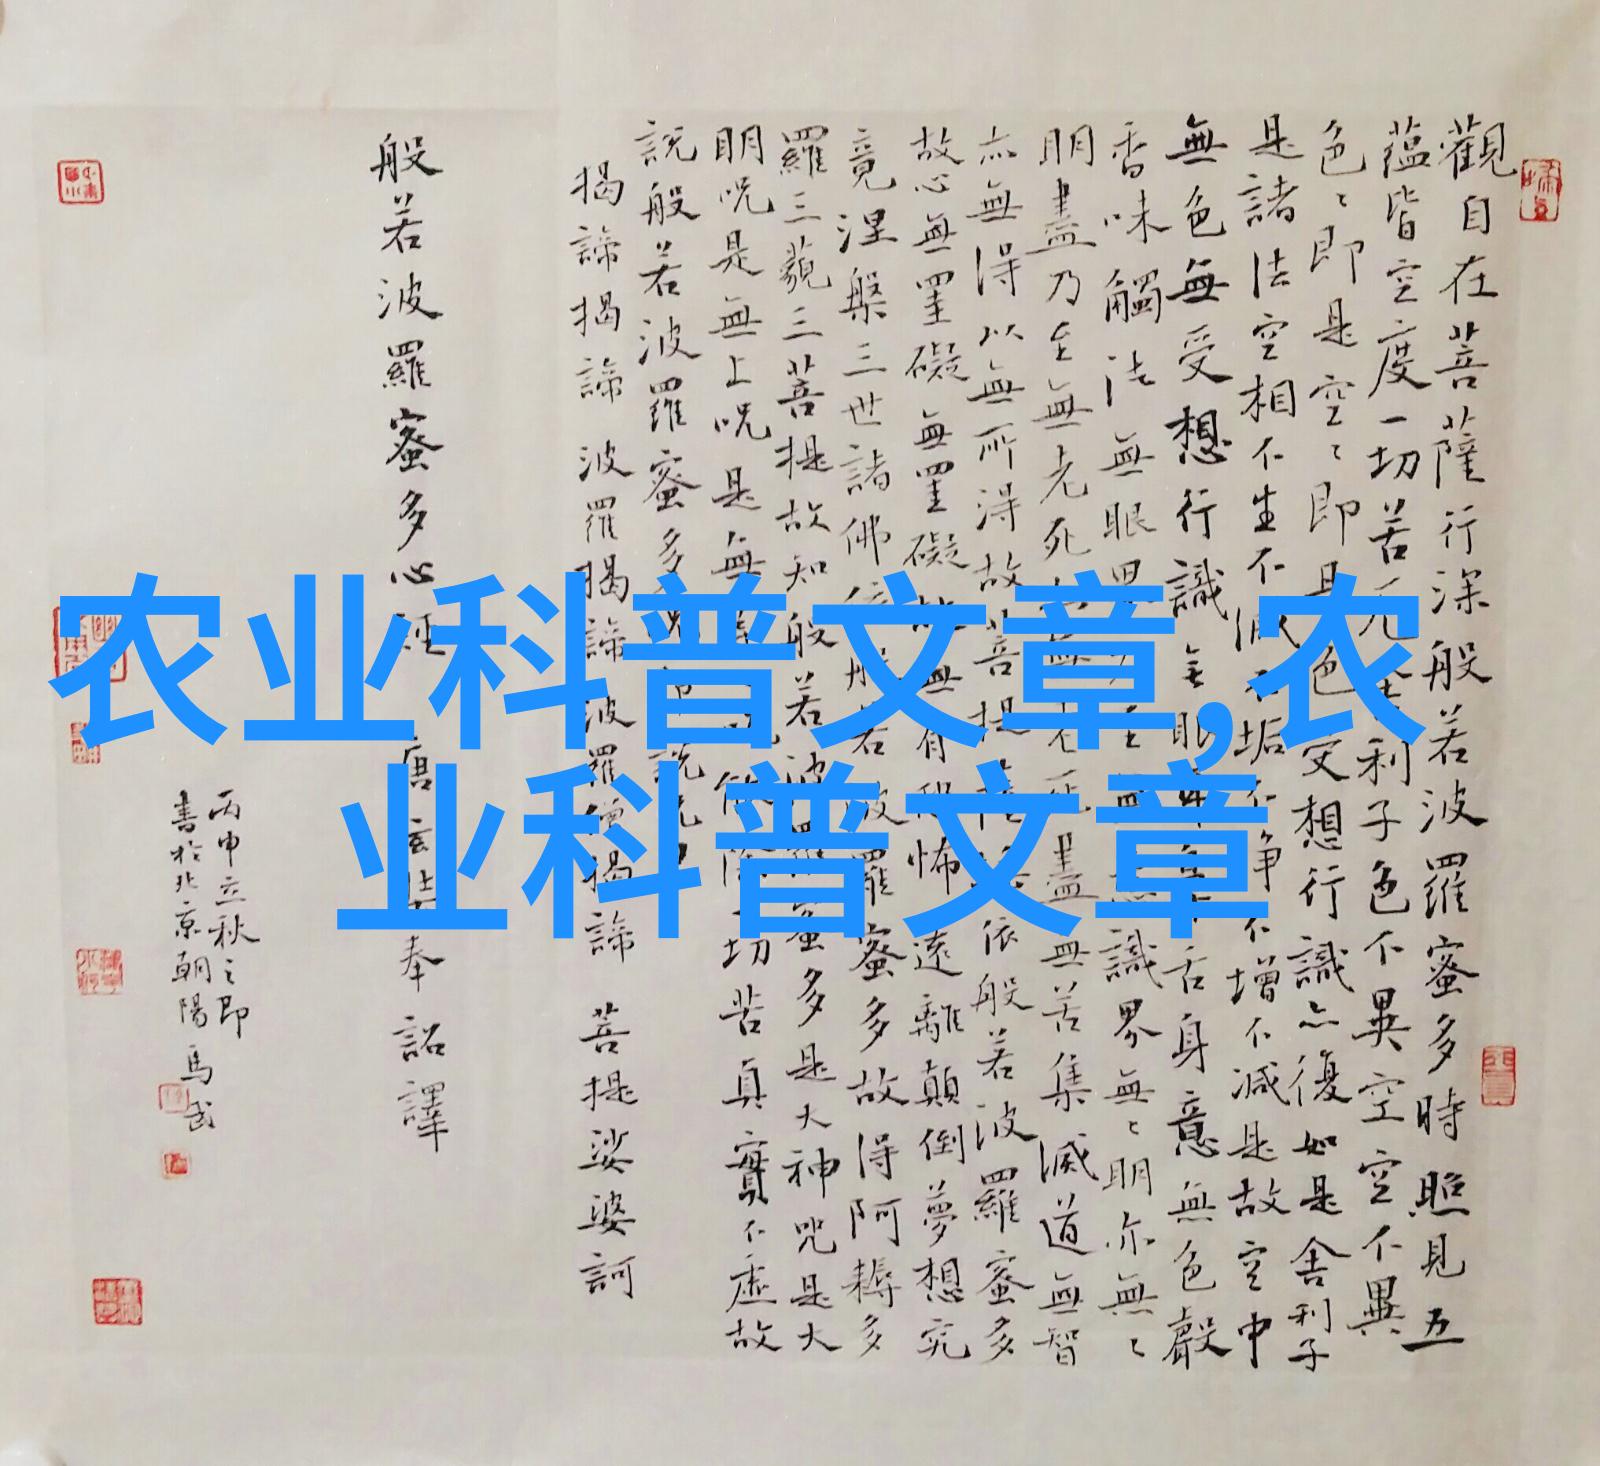 農业科普文章,农
业科普文章
觀自在菩薩行深般若波羅蜜多時照見五
蘊皆空度一切苦厄舍利子色不異空空不異
色〻即是空〻即是色受想行識亦復如是舍利子
是諸法空相不生不滅不垢不淨不增不減是故空中
無色無受想行識無眼耳鼻舌身意無色聲
香味觸法無眼界識界無〻明亦無〻
明盡乃至無老死亦無老死盡無苦集滅道無智
亦無得以無所得故菩提薩依般若波羅蜜多
故心無罣礙無罣礙故無有恐怖遠離顛倒夢想究
竟涅槃三世諸佛依般若波羅蜜多故得阿耨多
羅三藐三菩提故知般若波羅蜜多是大神咒是大
明咒是無上咒是無能除一切苦真實不虛故
說般若波羅蜜多說
揭諦揭諦 波羅揭諦 波羅僧揭諦 菩提娑婆訶
般若波羅蜜多心經 唐玄奘奉詔譯
丙申立秋之即
書於北京朝陽 馬武